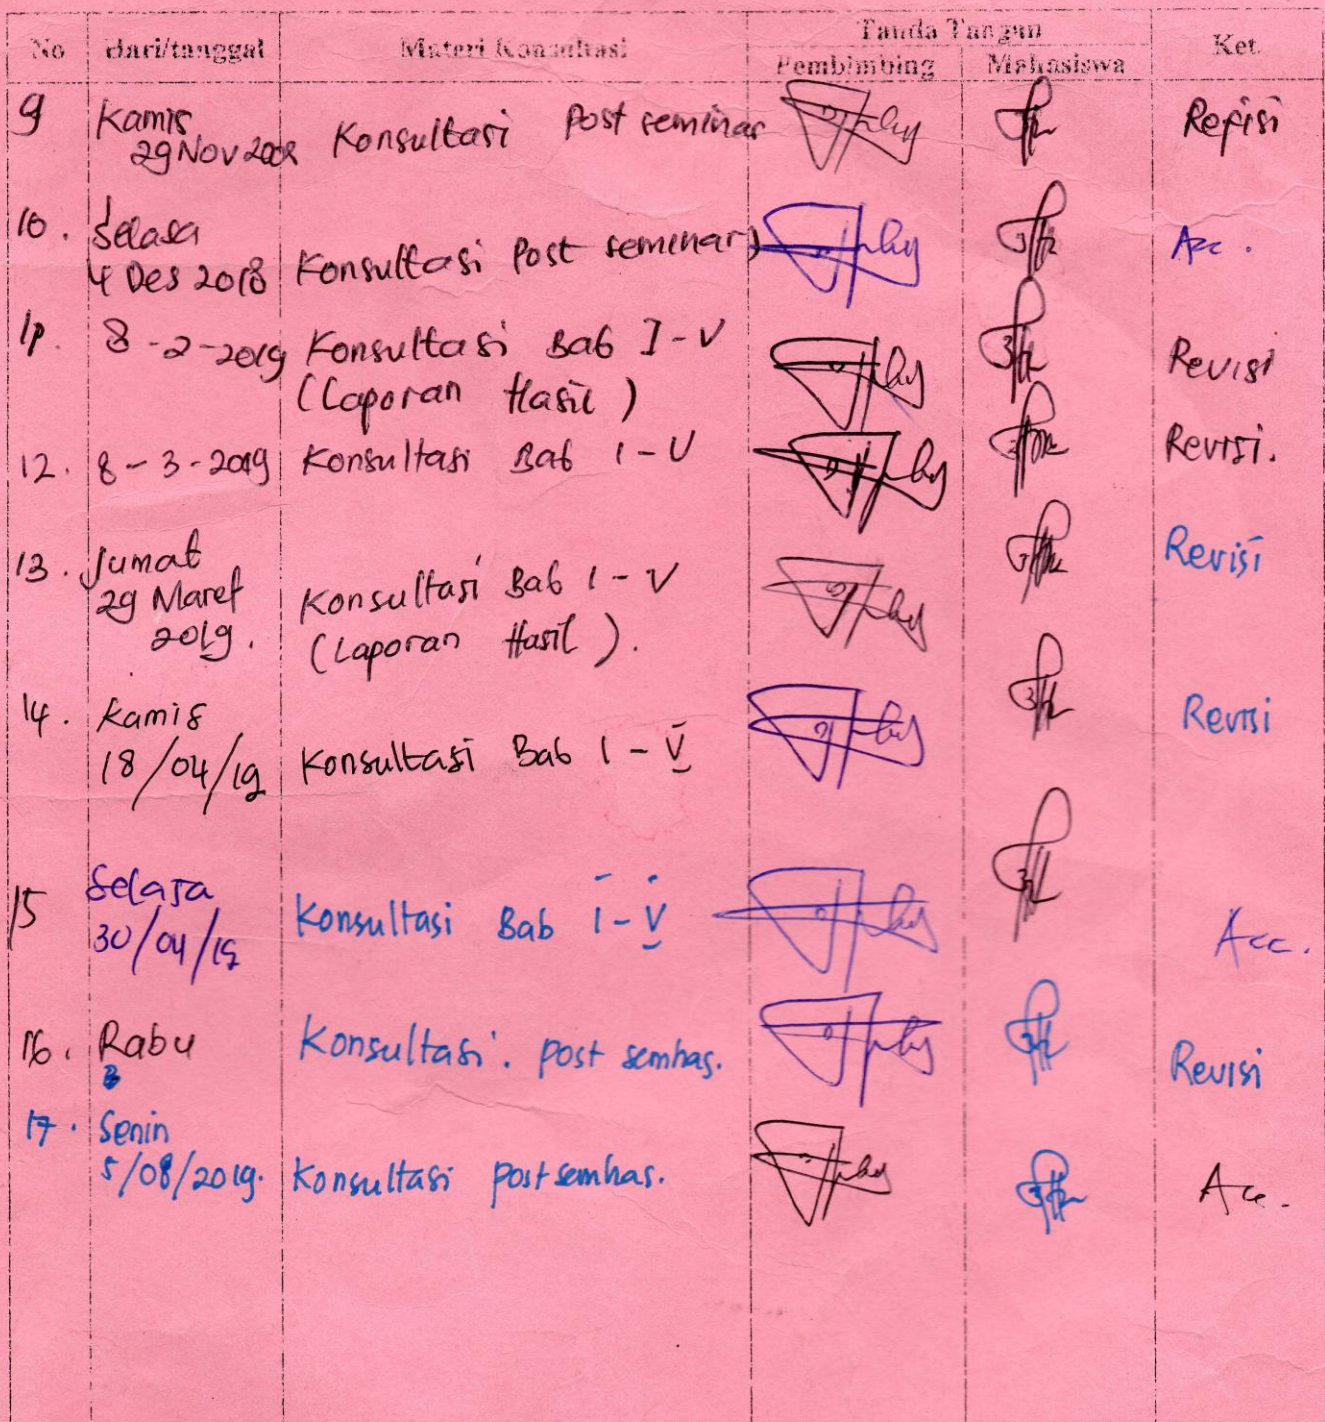 No Hari/tanggal Materi Konsultasi Tanda Tangan Ket.
Pembimbing Mahasiswa
9 Kamis
29 Nov Konsultasi Post seminar Refisi
10. Selasa
4 Des 2018 Konsultasi Post seminar Acc.
8-2-2019 Konsultasi Bab I-V Revisi
(Laporan Hasil)
12. 8-3-2019 Konsultasi Bab I-V Revisi.
13. Jumat Revisi
29 Maret Konsultasi Bab I-V
2019. (Laporan Hasil).
14. Kamis Revisi
18/04/19 Konsultasi Bab I-V
15 Selasa
30/04/19 Konsultasi Bab I-V Acc.
16. Rabu Konsultasi. post semhas. Revisi
17. Senin
5/08/2019. Konsultasi post semhas. Acc.